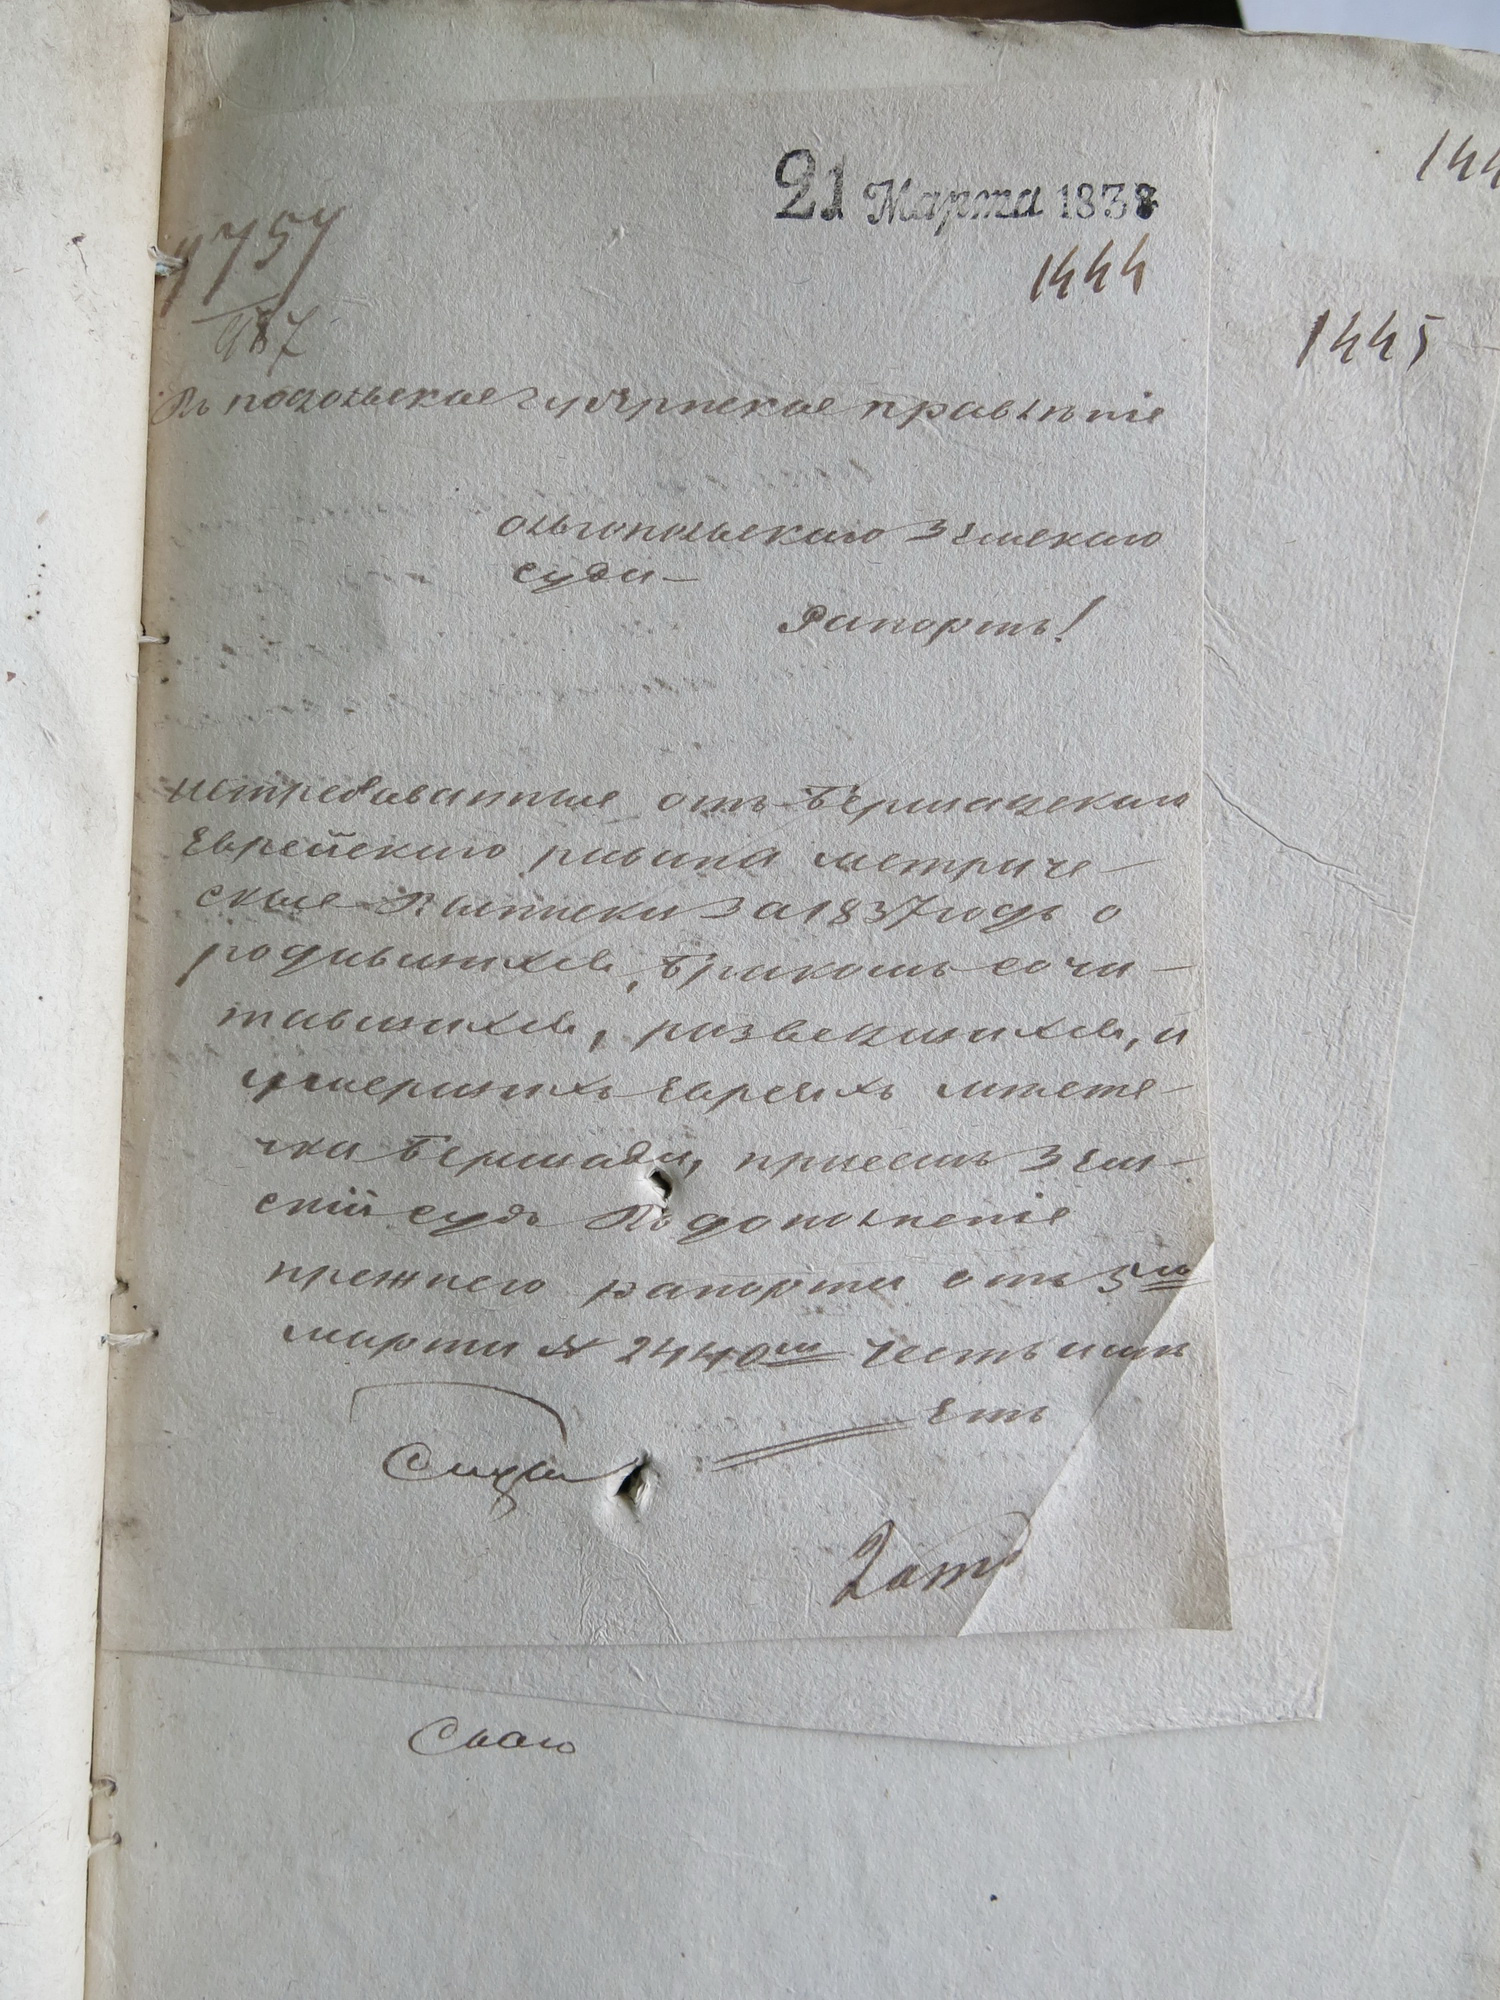 21 Марта 1838
144
1444
9757
987
1445
Въ подольское губернское правлѣніе
ольгопольскаго земскаго
суда
Рапортъ!
истребованные отъ Бершадскаго
Еврейскаго равина метриче-
скіе Выписки за 1837 годъ о
родившихся, Бракомъ сочи-
тавшихся, разведшихся, и
умершихъ евреяхъ мѣсте-
чка Бершади, при семъ Зем-
скій судъ Въ дополненіе
прежнего рапорта отъ 5го
марта № 2440мъ честь имѣ
етъ